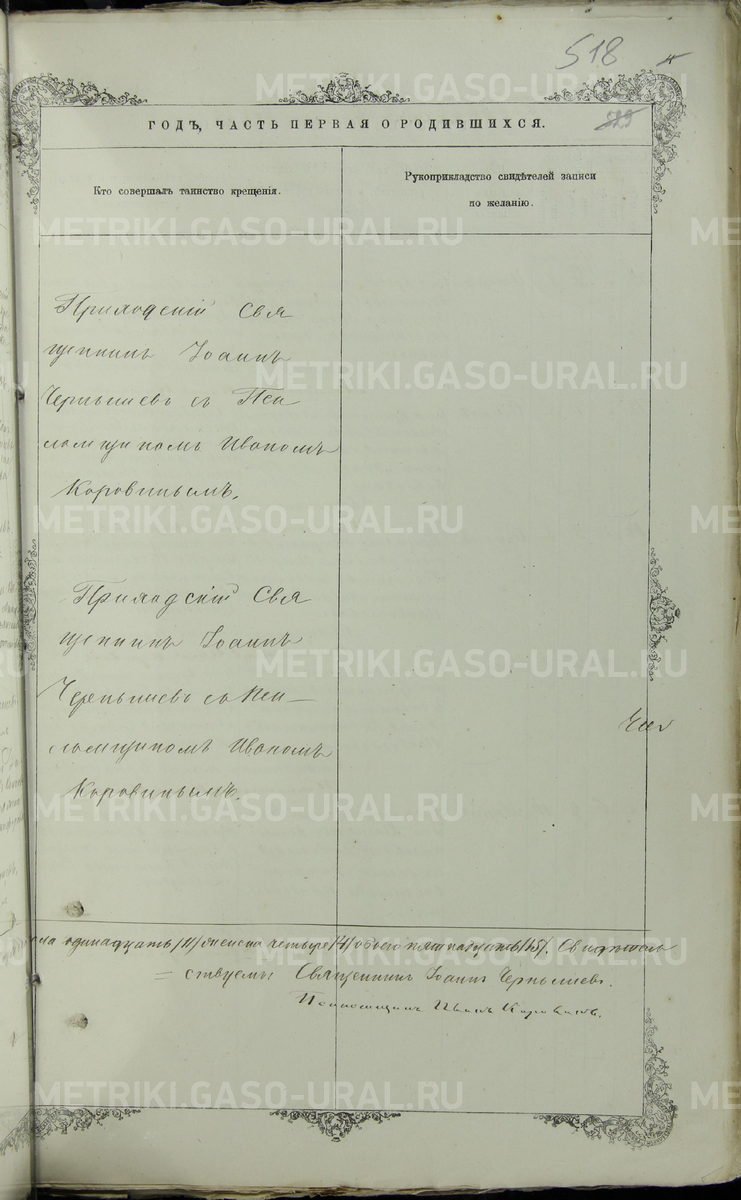 518
529
ГОДЪ, ЧАСТЬ ПЕРВАЯ О РОДИВШИХСЯ.
Кто совершалъ таинство крещенія.
Рукоприкладство свидѣтелей записи
по желанію.
Приходскій Свя
щенникъ Іоаннъ
Чернышевъ съ Пса
ломщикомъ Иваномъ
Коровинымъ.
Приходскій Свя
щенникъ Іоаннъ
Чернышевъ съ Пса—
ломщикомъ Иваномъ
Коровинымъ.
одинадцать /11/ женска четыре /4/ обоего пятнадцать /15/. Свидѣтель
= ствуемъ: Священникъ Іоаннъ Чернышевъ.
Псаломщикъ Иванъ Коровинъ.
METRIKI.GASO-URAL.RU